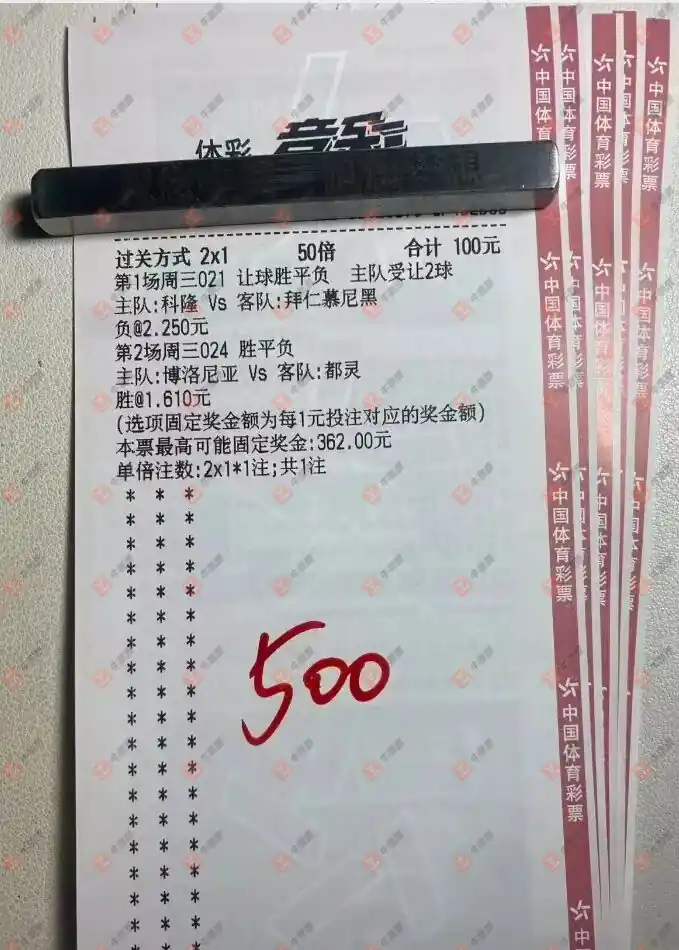 体彩 竞彩
过关方式 2x1 50倍 合计 100元
第1场周三021 让球胜平负 主队受让2球
主队:科隆 Vs 客队:拜仁慕尼黑
负@2.250元
第2场周三024 胜平负
主队:博洛尼亚 Vs 客队:都灵
胜@1.610元
(选项固定奖金额为每1元投注对应的奖金额)
本票最高可能固定奖金:362.00元
单倍注数:2x1*1注;共1注
500
中国体育彩票
中国体育彩票
中国体育彩票
中国体育彩票